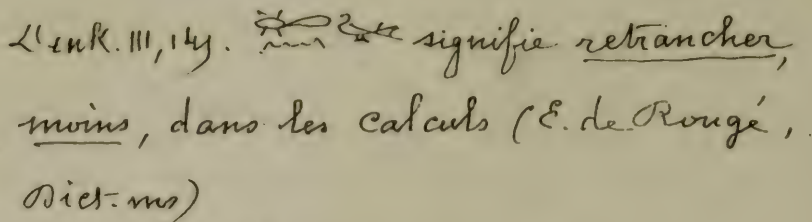 L'enk. III, signifie retrancher,
moins, dans les calculs (E. de Rougé,
Dict. ms)